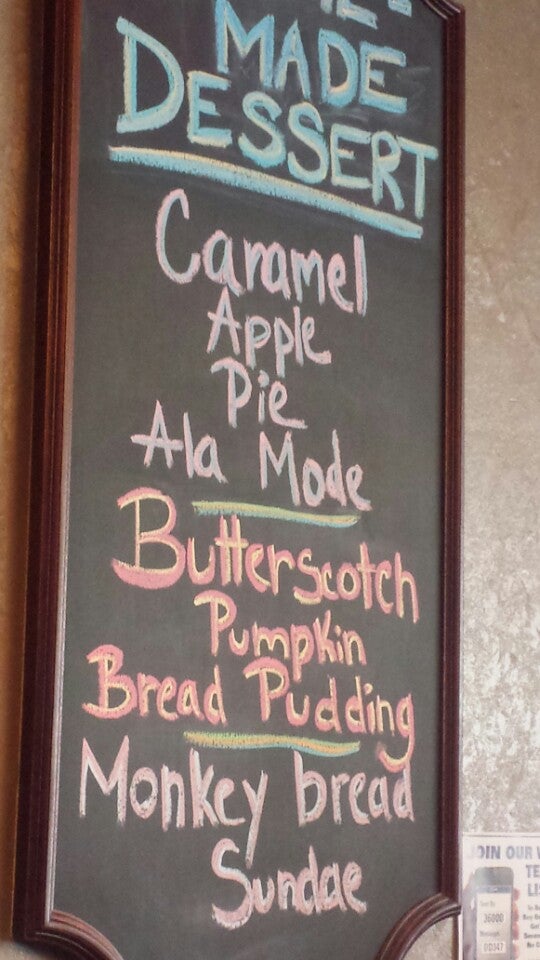 MADE
DESSERT
Caramel
Apple
Pie
Ala Mode
Butterscotch
Pumpkin
Bread Pudding
Monkey bread
Sundae
JOIN OUR
36000
DD347